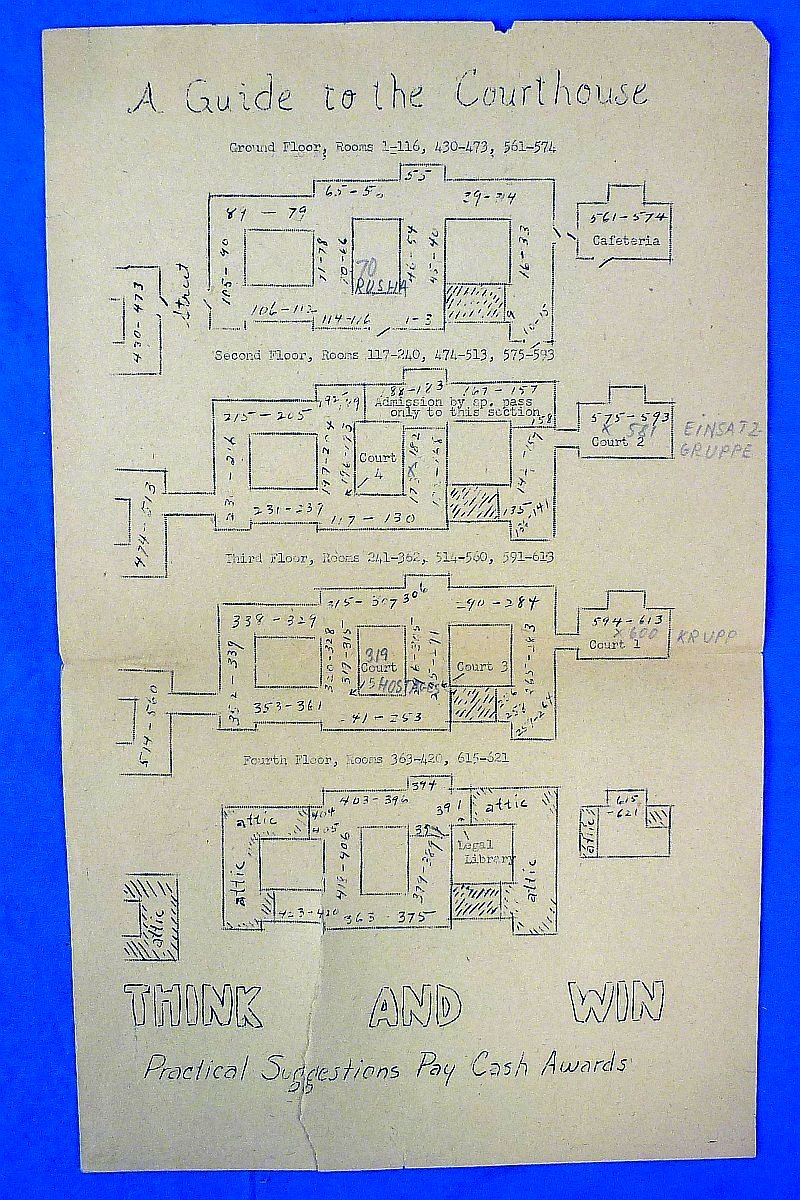 A Guide to the Courthouse
Ground Floor, Rooms 1-116, 430-473, 561-574
55
65-5
39-34
89 - 79
561-574
Cafeteria
105-90
71-78
70-66
46-54
45-40
16-33
70
RUSHA
430-473
Street
106-112
114-116
1-3
Second Floor, Rooms 117-240, 474-513, 575-593
88-183
167-157
Admission by sp. pass
only to this section
215-205
158
575-593
X 581
Court 2
EINSATZ
GRUPPE
Court
4
X
182
231-239
117-130
135
141
474-513
Third Floor, Rooms 241-362, 514-560, 591-613
315-307
306
290-284
339-329
594-613
X 600
Court 1
KRUPP
352-339
320-328
319-315
319
Court
5
HOSTAGES
Court 3
353-361
41-253
514-560
Fourth Floor, Rooms 363-420, 615-621
394
403-396
391
attic
attic
404
405
615
-621
attic
attic
Legal
Library
attic
423-420
363-375
attic
THINK AND WIN
Practical Suggestions Pay Cash Awards